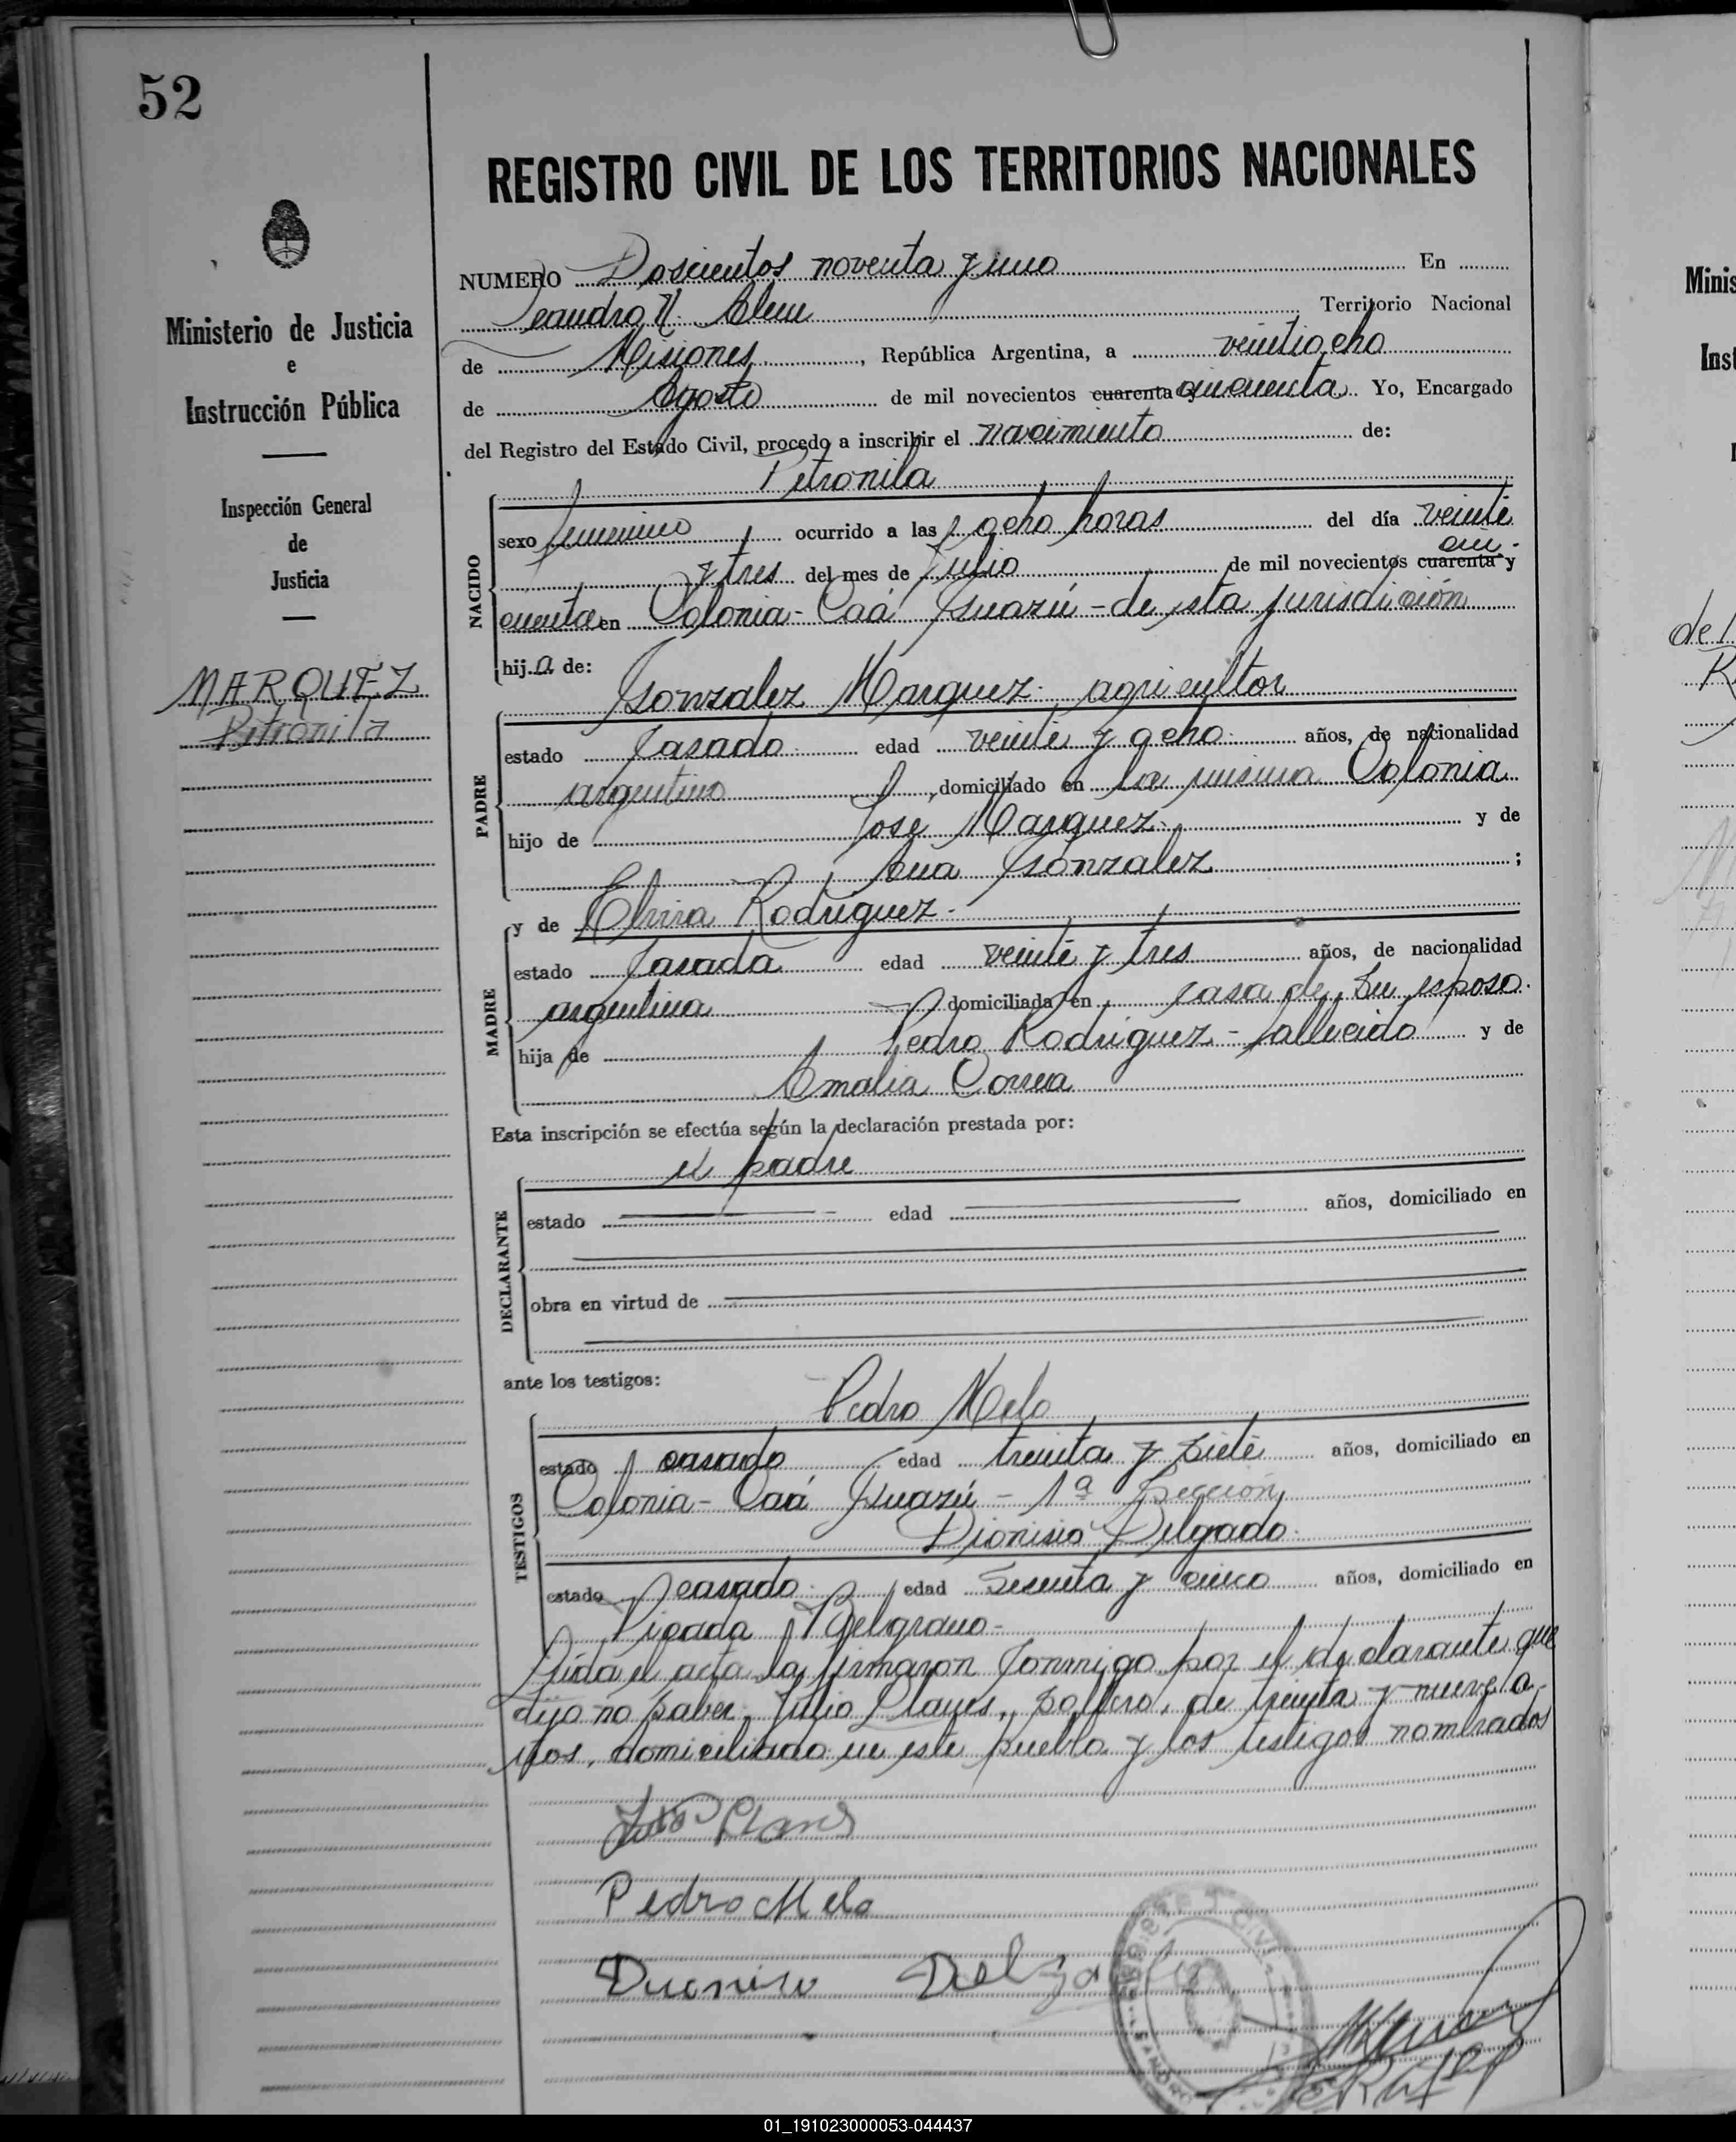 52
REGISTRO CIVIL DE LOS TERRITORIOS NACIONALES
Ministerio de Justicia
e
Instrucción Pública
Inspección General
de
Justicia
MARQUEZ
Petronila
NUMERO Doscientos noventa y uno En
Leandro N. Alem Territorio Nacional
de Misiones, República Argentina, a veintiocho
de Agosto de mil novecientos cuarenta y cincuenta. Yo, Encargado
del Registro del Estado Civil, procedo a inscribir el nacimiento de:
Petronila
NACIDO
sexo femenino ocurrido a las ocho horas del día veinte
y tres del mes de Julio de mil novecientos cuarenta y cin-
cuenta en Colonia-Caá Guazú-de esta jurisdicción
hija de:
Gonzalez Marquez agricultor
PADRE
estado Casado edad veinte y ocho años, de nacionalidad
argentino, domiciliado en la misma Colonia
hijo de José Marquez y de
Ana Gonzalez;
y de Elvira Rodriguez-
MADRE
estado Casada edad veinte y tres años, de nacionalidad
argentina domiciliada en casa de su esposo.
hija de Pedro Rodriguez-fallecido y de
Amalia Correa
Esta inscripción se efectúa según la declaración prestada por:
el padre
DECLARANTE
estado edad años, domiciliado en
obra en virtud de
ante los testigos:
Pedro Melo
TESTIGOS
estado casado edad treinta y siete años, domiciliado en
Colonia-Caá Guazú-1ª Sección,
Dionisio Delgado
estado casado edad sesenta y cinco años, domiciliado en
Picada Belgrano-
Leída el acta la firmaron conmigo por el declarante que
dijo no saber, Julio Llanes, soltero, de treinta y nueve a-
ños, domiciliado en este pueblo y los testigos nombrados
Pedro Melo
Dionisio Delgado
Minis
Inst
de
01_191023000053-044437